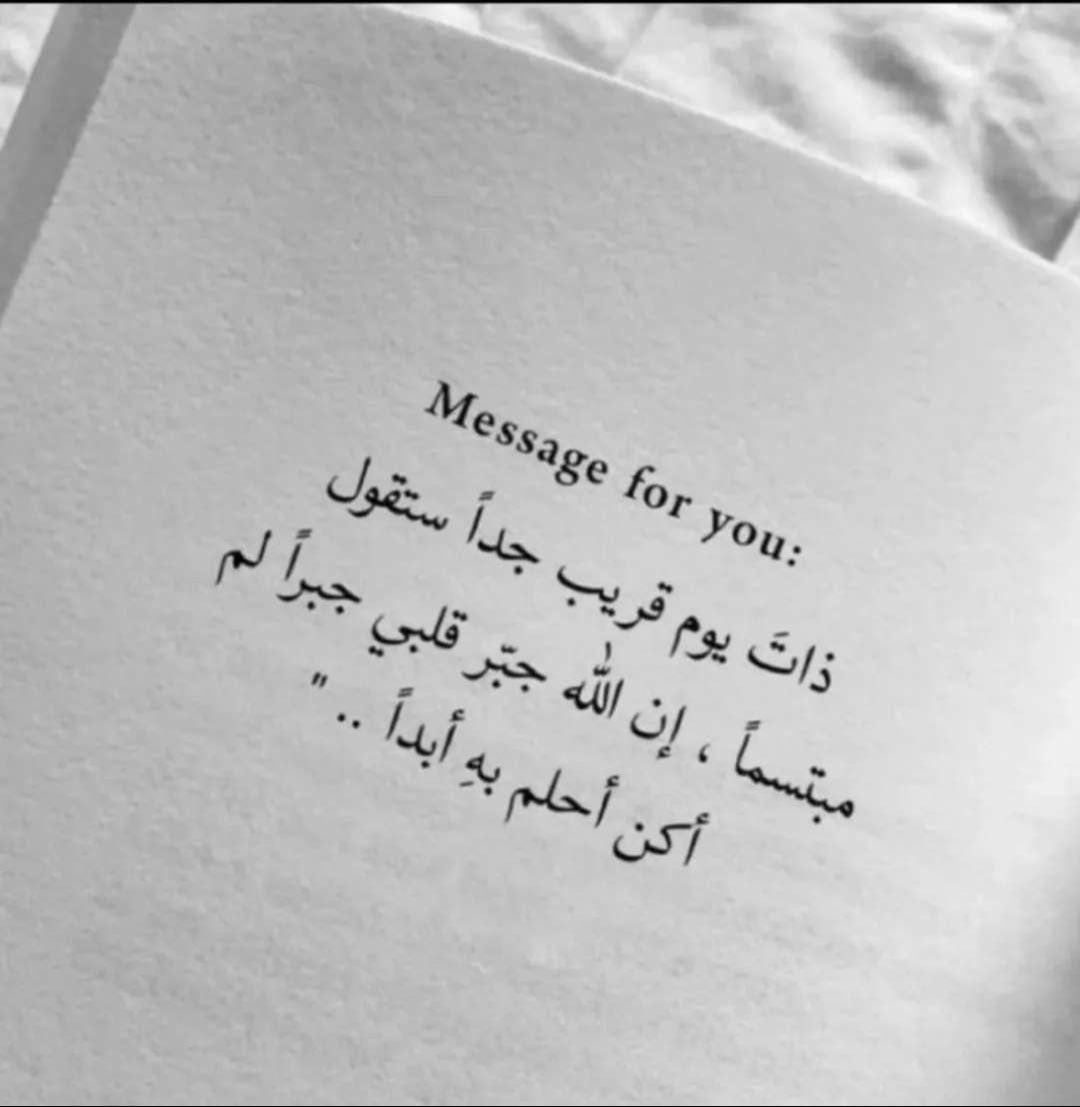 Message for you:
ذاتَ يوم قريب جداً ستقول
مبتسماً ، إن الله جبّر قلبي جبراً لم
أكن أحلم بهِ أبداً .. "